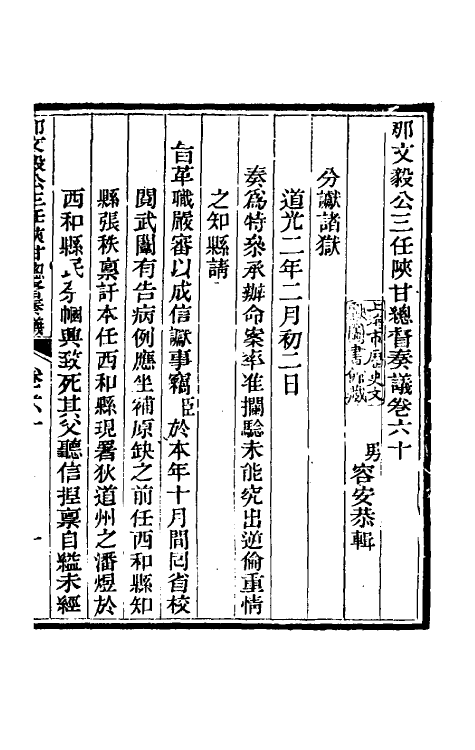 那文毅公三任陝甘總督奏議卷六十
男 容安恭輯
分讞諸獄
道光二年二月初二日
奏爲特叅承辦命案率准攔驗未能究出逆倫重情
之知縣請
旨革職嚴審以成信讞事竊臣於本年十月間囘省校
閱武闈有告病例應坐補原缺之前任西和縣知
縣張秩稟訐本任西和縣現署狄道州之潘煜於
西和縣民 幗興致死其父聽信捏稟自縊未經
那文毅公三任陝甘總督奏議 卷六十 一